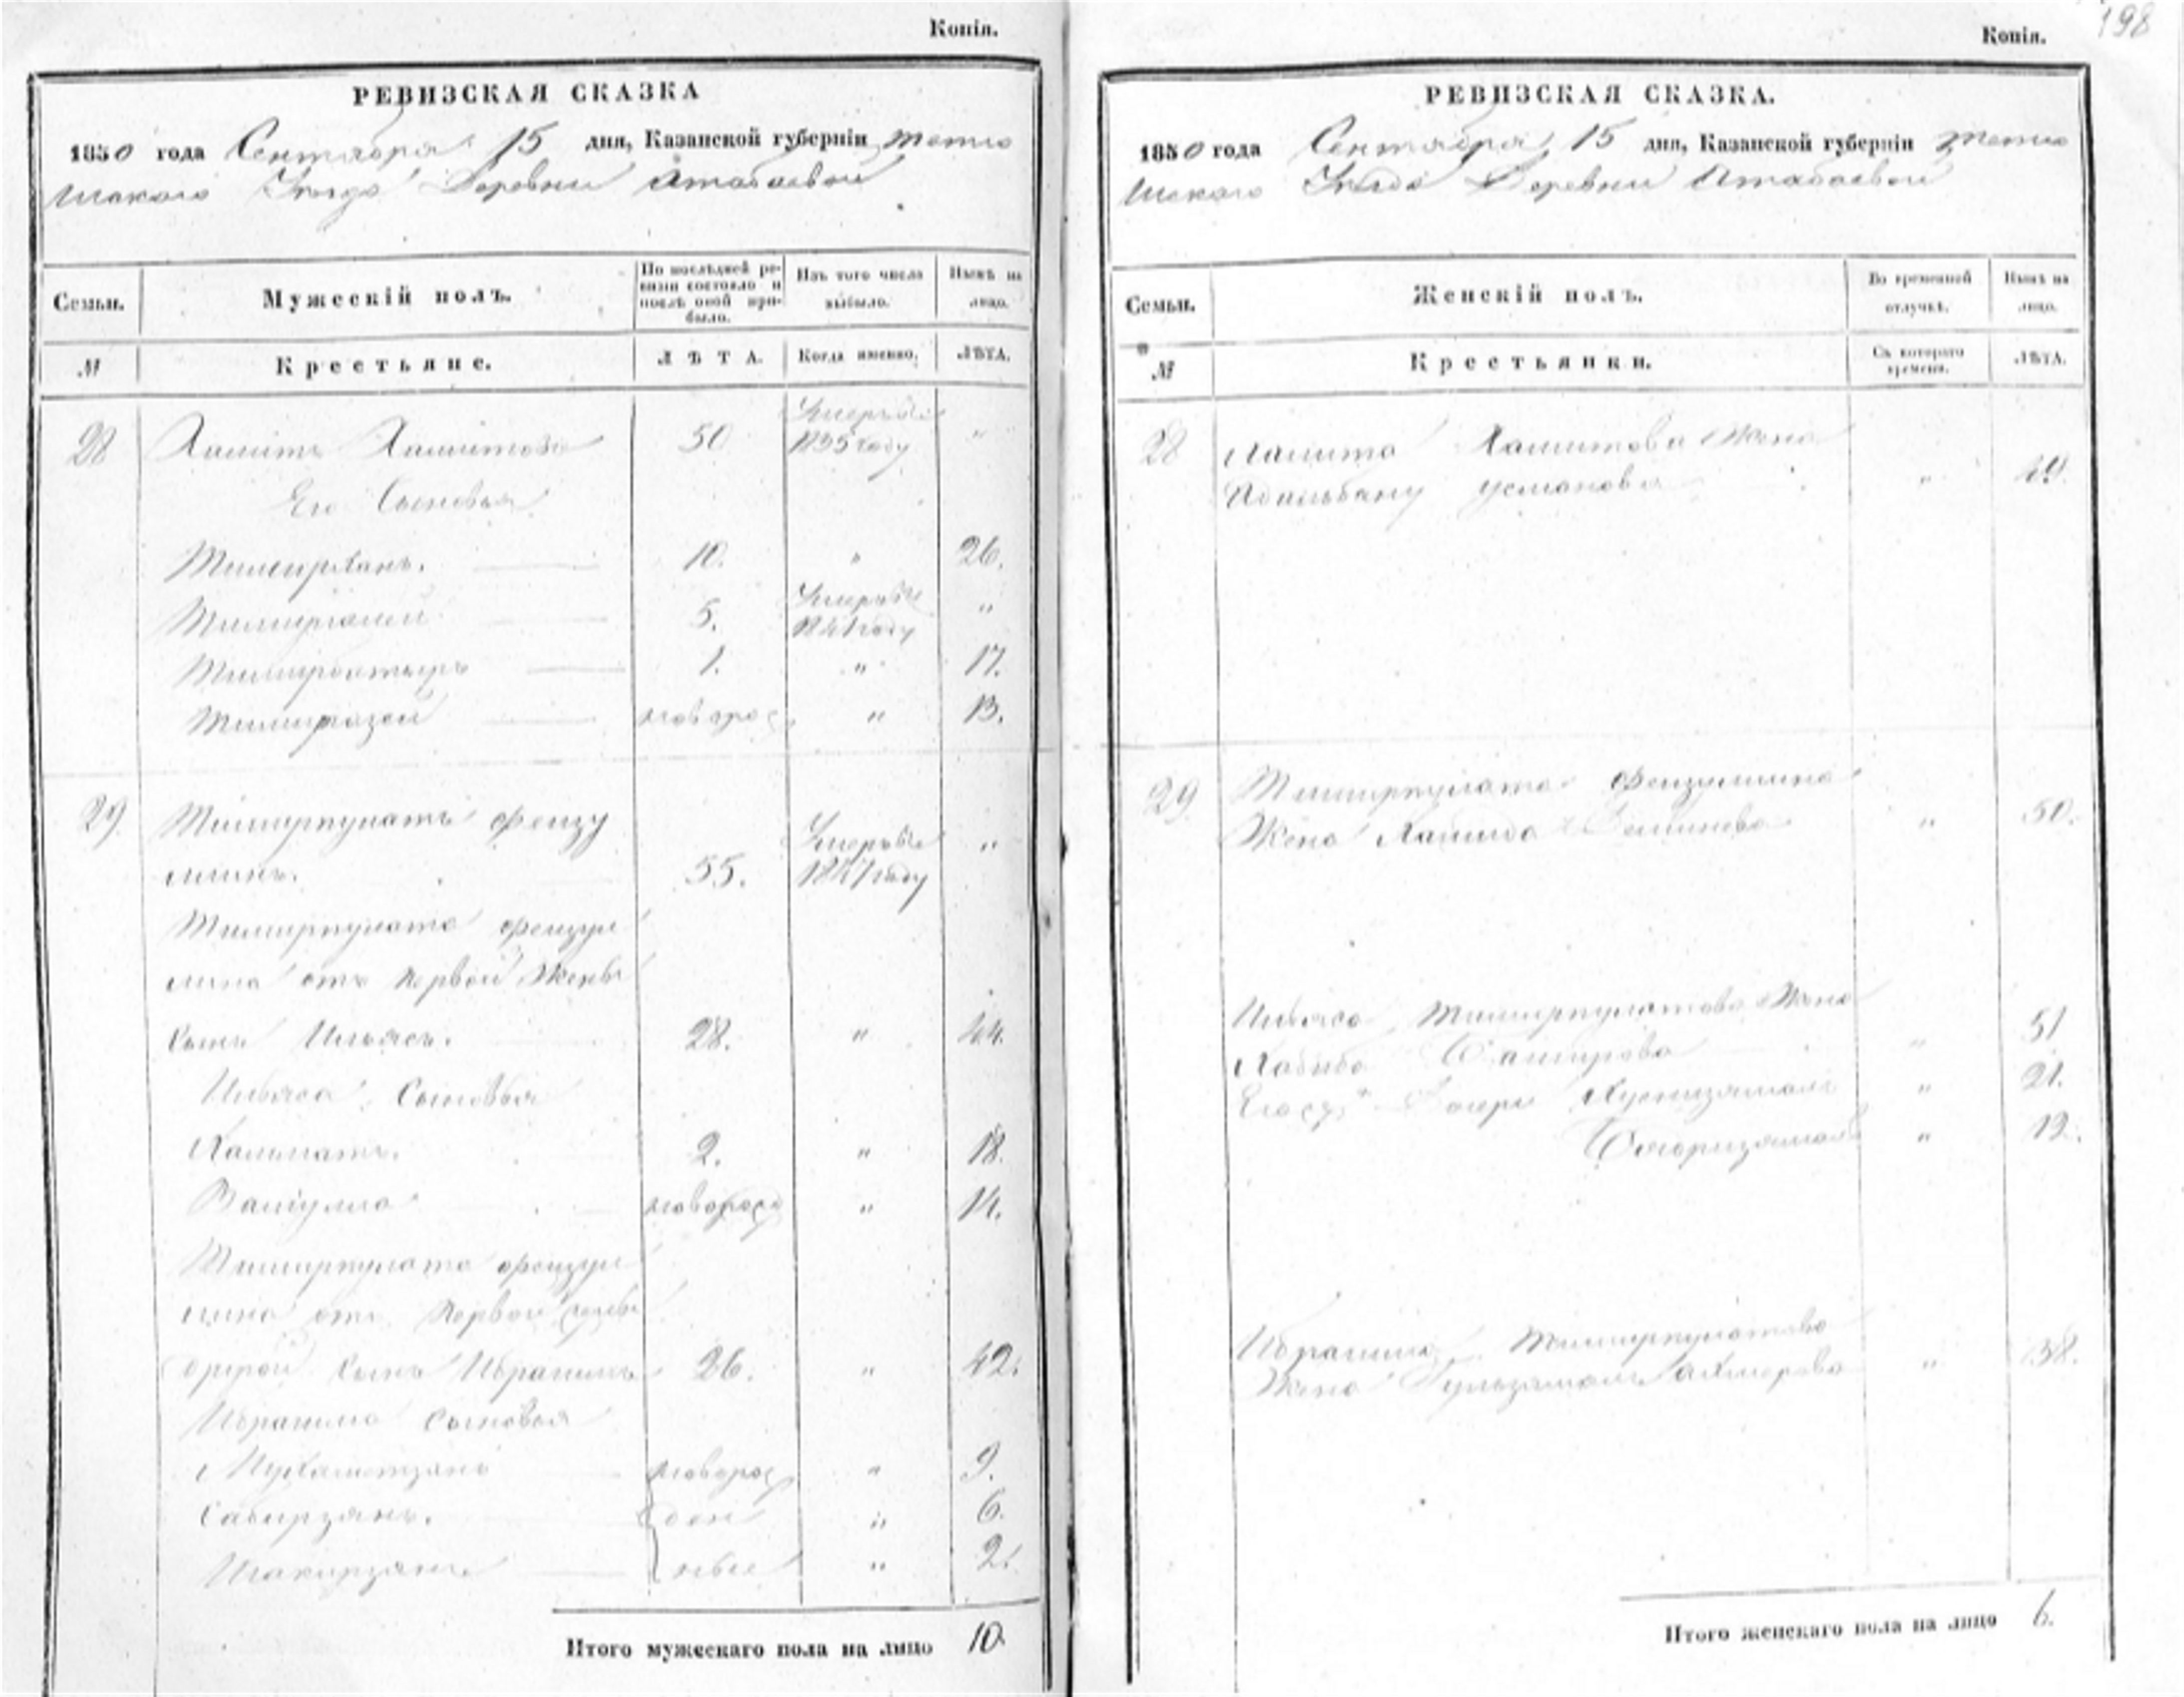 Копія.
РЕВИЗСКАЯ СКАЗКА
1850 года Сентября 15 дня, Казанской губерніи Тетю
шскаго Уезда Деревни Атабаевой
Семьи.
Мужескій полъ.
По послѣдней ре-
визіи состояло и
послѣ оной при-
было.
Изъ того числа
выбыло.
Нынѣ на
лицо.
№
Крестьяне.
ЛѢТА.
Когда именно.
ЛѢТА.
28 Хамитъ Хамитовъ 50 Умеръ въ 1835 году "
Его Сыновья
Тимирханъ. 10. " 26.
Тимиргалей 5. Умеръ въ 1841 году "
1. " 17.
Тимиргазей новорож. " 13.
29 Тимирпулатъ Фейзу
ллинъ. 55. Умеръ въ 1847 году "
Тимирпулата Фейзул
лина отъ первой Жены
Сынъ Ильясъ. 28. " 44.
Ильяса Сыновья
2. " 18.
Валиулла новорож " 14.
Тимирпулата Фейзул
лина отъ первой Жены
другой Сынъ Ибрагимъ 26. " 42.
Ибрагима Сыновья
Мухаметзянъ новорож " 9.
Сабирзянъ. ден " 6.
Шакирзянъ ные " 2.
Итого мужескаго пола на лицо 10.
Копія.
198
РЕВИЗСКАЯ СКАЗКА.
1850 года Сентября 15 дня, Казанской губерніи Тетю
шскаго Уезда Деревни Атабаевой
Семьи.
Женскій полъ.
Во временной
отлучкѣ.
Нынѣ на
лицо.
№
Крестьянки.
Съ котораго
времени.
ЛѢТА.
28 Хамита Хамитова Жена
Усманова "
29 Тимирпулата Фейзуллина
Жена " 50.
Ильяса Тимирпулатова Жена
Хабиба " 51
Его Дочери Хуснизямал " 21.
Бадгризямал " 12.
Ибрагима Тимирпулатова
Жена Гульзямал " 38.
Итого женскаго пола на лицо 6.